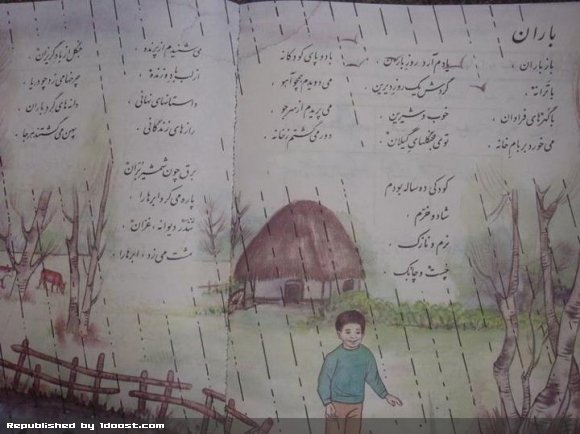 باران
باز باران ،
با ترانه ،
با گهرهای فراوان ،
می خورد بر بام خانه .
یادم آرد روز باران ،
گردش یک روز دیرین ،
خوب و شیرین ،
توی جنگلهای گیلان .
کودکی ده ساله بودم
شاد و خرّم ،
نرم و نازک ،
چست و چابک .
با دو پای کودکانه
می دویدم همچو آهو ،
می پریدم از سر جو ،
دور می گشتم ز خانه .
می شنیدم از پرنده ،
از لب باد وزنده ،
داستانهای نهانی ،
رازهای زندگانی .
برق چون شمشیر بران
پاره می کرد ابرها را ،
تندر دیوانه ، غران ،
مشت می زد ، ابرها را .
جنگل از باد گریزان
چرخها می زد چو دریا
دانه های گرد باران
پهن می گشتند هر جا .
Republished by 1doost.com